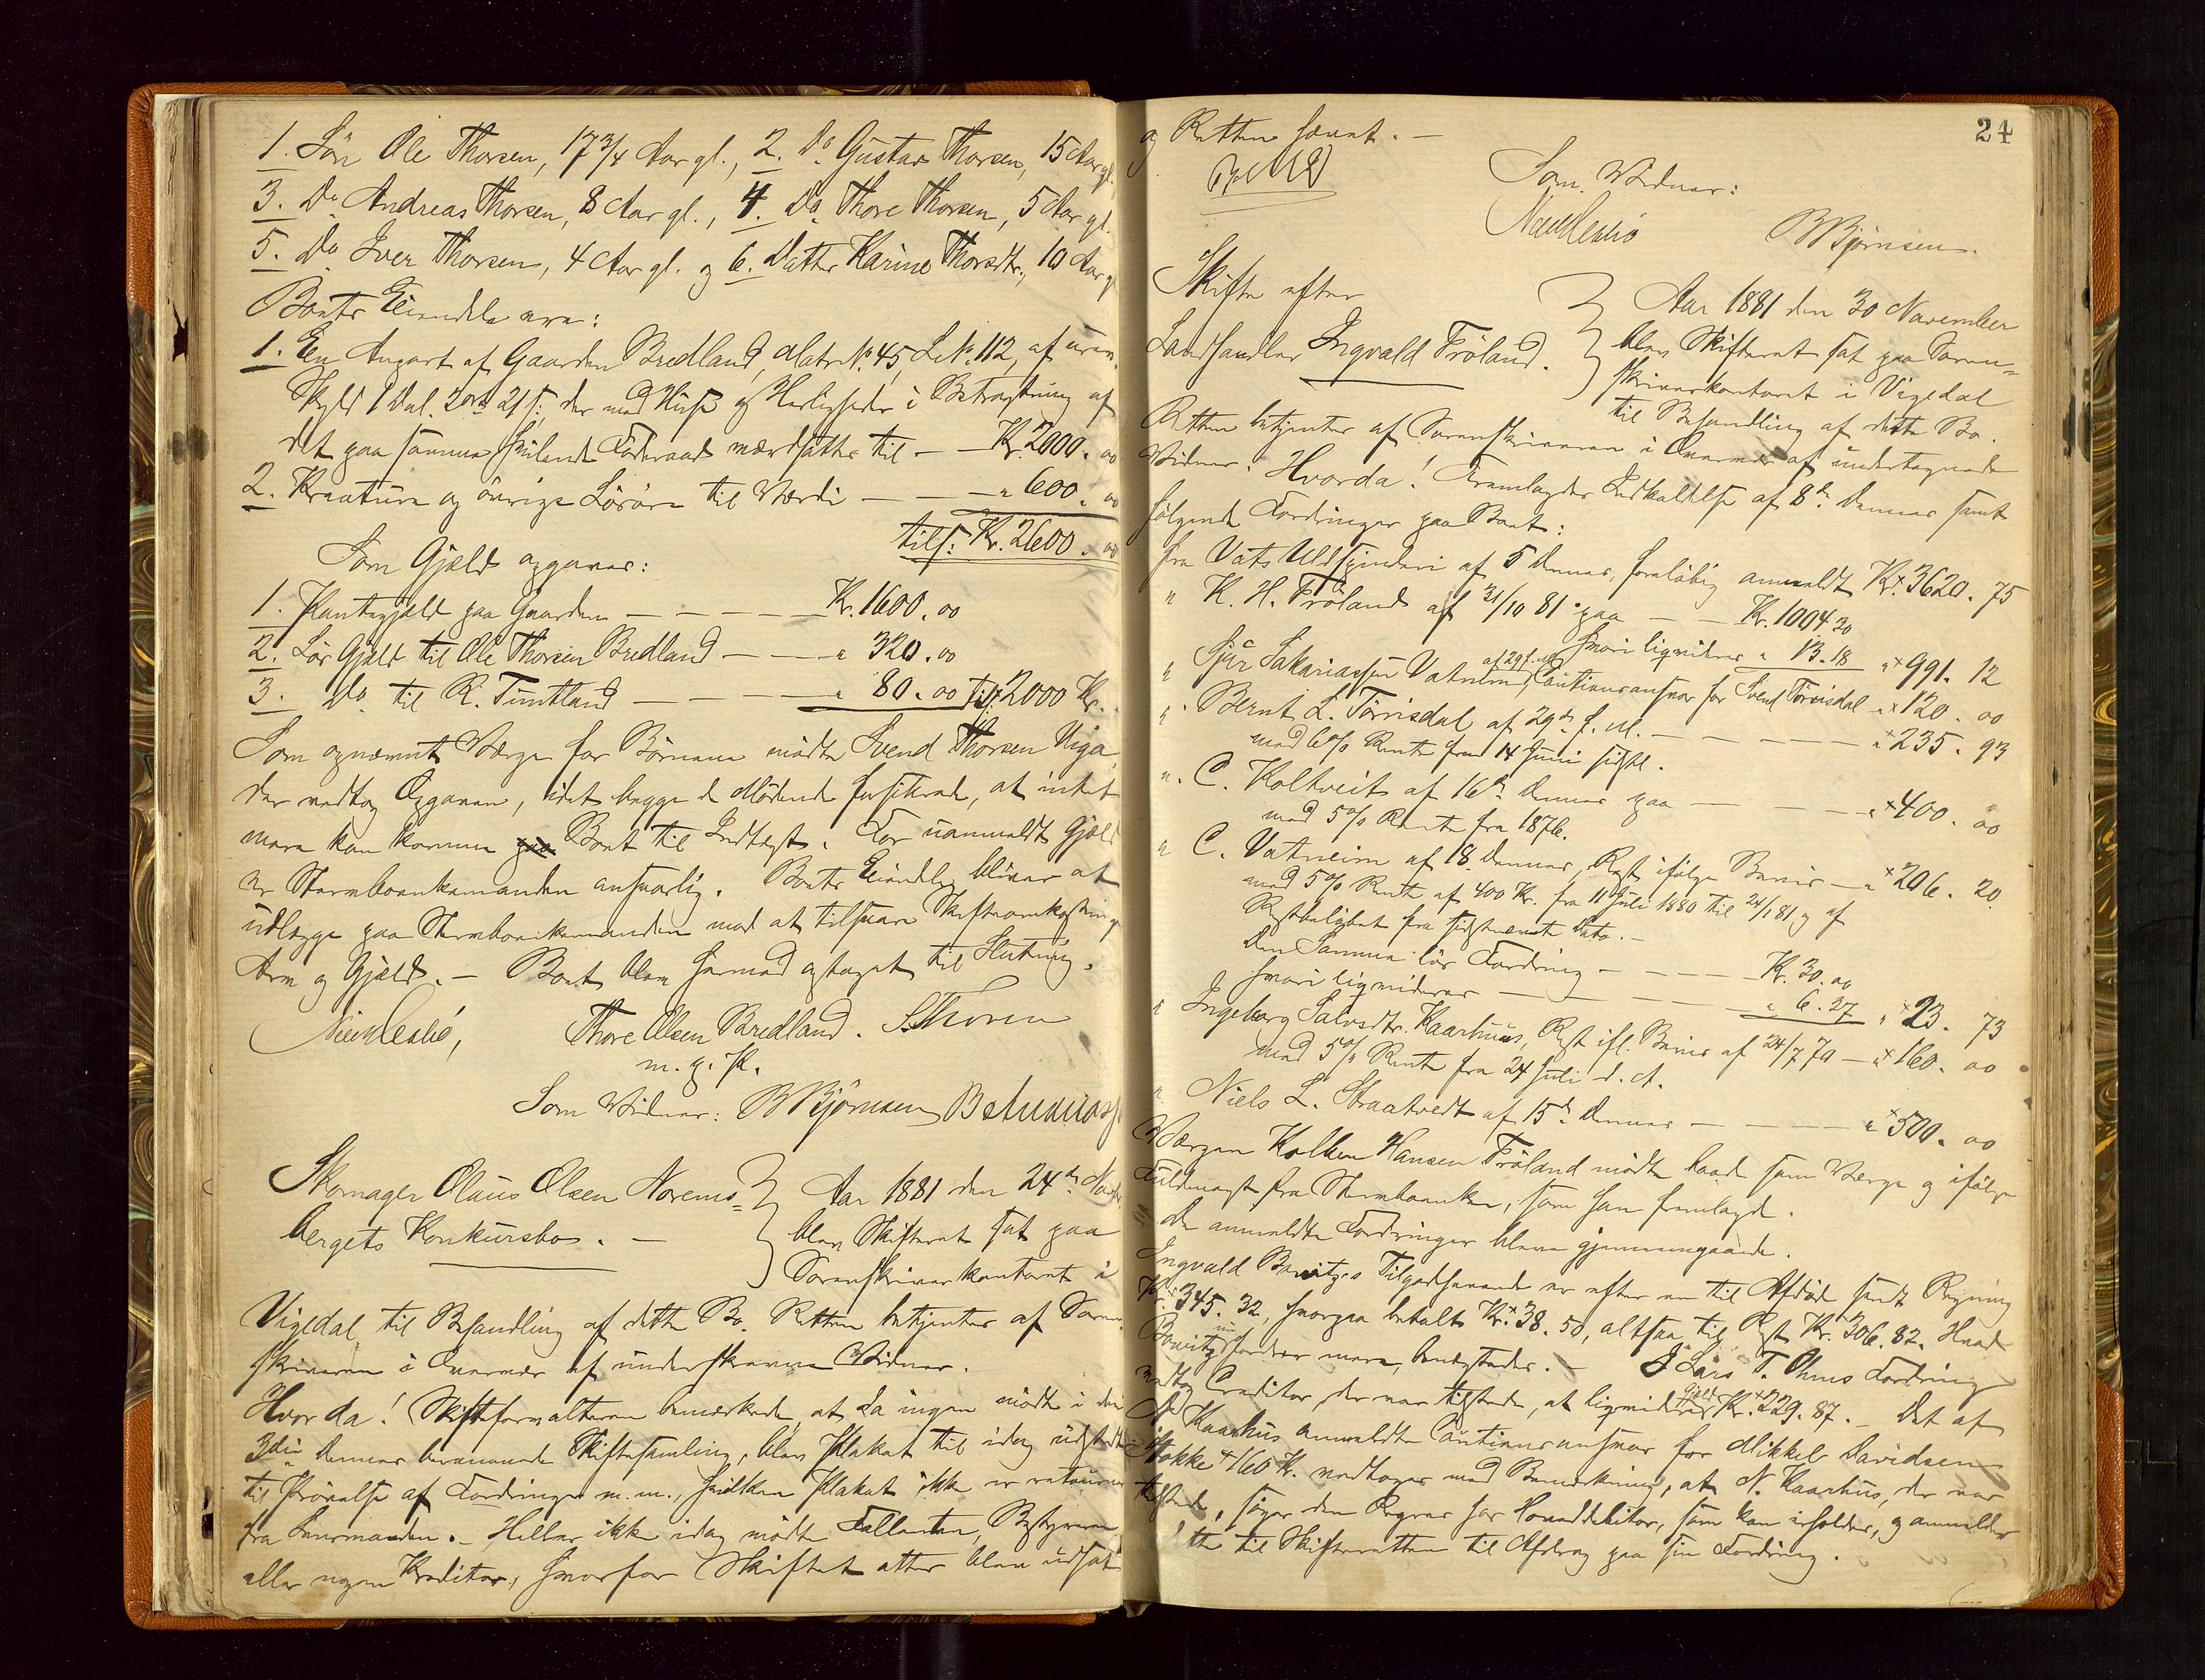 1. Søn Ole Thorsen, 17 3/4 Aar gl., 2. Do Gustav Thorsen, 15 Aar gl.
3. Do Andreas Thorsen, 8 Aar gl., 4. Do Thore Thorsen, 5 Aar gl.
5. Do Iver Thorsen, 4 Aar gl. og 6. Datter Karine Thorsdtr., 10 Aar gl
Boets Eiendele ere:
1. En Anpart af Gaarden Bredland, Matr. No. 45, L. No. 112, af uren.
Skyld 1 Dal. 2 ort 21 s: der med Huse og Herligheder i Betragtning af
det paa samme hvilende Føderaad værdsattes til — Kr. 2000. 00
2. Kreature og øvrige Løsøre til Værdi — — — " 600. 00
tils: Kr. 2600. 00
Som Gjæld opgaves:
1. Pantegjæld paa Gaarden — — — Kr. 1600. 00
2. Løs Gjæld til Ole Thorsen Bredland — — " 320. 00
3. Do til R. Tuntland — — — " 80. 00 tils. 2000 Kr.
Som opnævnt Værge for Børnene mødte Svend Thorsen Viga,
der vedtog Opgaven, idet begge de Mødende forsikrede, at intet
mere kan komme Boet til Indtægt. For uanmeldt Gjæld
er Stervboenkemanden ansvarlig. Boets Eiendele bliver at
udlægge paa Stervboenkemanden mod at tilsvare Skifteomkostninge
Arv og Gjæld. — Boet blev hermed optaget til Slutning.
Thore Olsen Bredland. S. Thorsen
m. p. P.
Som Vidner: B Bjørnsen
Skomager Olaus Olsen Norems=
bergets Konkursbo. —
Aar 1881 den 24de Novb.
blev Skifteret sat paa
Sorenskriverkontoret i
Vigedal til Behandling af dette Bo. Retten betjentes af Soren
skriveren i Overvær af underskrevne Vidner.
Hvorda! Skifteforvalteren bemærkede, at da ingen mødte i den
3die dennes berammede Skiftesamling, blev Plakat til idag udstedt
til Prøvelse af Fordringer m. m., hvilken Plakat ikke er returneret
fra Lensmanden. — Heller ikke idag mødte Fallenten, Bestyreren
eller nogen Kreditor, hvorfor Skiftet atter blev udsat
24
og Retten hævet. —
Som Vidner:
B Bjørnsen.
Skifte efter
Landhandler Ingvald Frøland.
Aar 1881 den 30 November
blev Skifteret sat paa Soren=
skriverkontoret i Vigedal
til Behandling af dette Bo.
Retten betjentes af Sorenskriveren i Overvær af undertegnede
Vidner. Hvorda! Fremlagdes Indkaldelse af 8de dennes samt
følgende Fordringer paa Boet:
fra Vats Uldspinderi af 5 dennes, foreløbig anmeldt Kr. 3620. 75
" K. H. Frøland af 31/10 81 paa — — Kr. 1004 30
hvori liqvideres " 13. 18 " 991. 12
" Sjur Sakariassen Vatneim, af 29 f. M. Cautionsansvar for Svend Tørrisdal " 120. 00
" Bernt L. Tørrisdal af 29de f. M. — — — " 235. 93
med 6% Rente fra 14 Juni sidstl.
" C. Koltveit af 16de dennes paa — — — " 400. 00
med 5% Rente fra 1876.
" C. Vatneim af 18 dennes, Rest ifølge Bevis — " 206. 20
med 5% Rente af 400 Kr. fra 11 Juli 1880 til 24/1 81 og af
Restbeløbet fra sidstnævnte Dato. —
Den Samme løs Fordring — — — Kr. 30. 00
hvori liqvideres — — — " 6. 27 " 23. 73
" Ingeborg Salvsdtr. Kaarhuus, Rest ifl. Bevis af 24/7 79 — " 160. 00
med 5% Rente fra 24 Juli d. A.
" Niels L. Straatvedt af 15de dennes — — — " 500. 00
Værgen Kolben Hansen Frøland mødte baade som Værge og ifølge
Fuldmagt fra Stervboenken, som han fremlagde.
De anmeldte Fordringer bleve gjennemgaaede.
Ingvald Tilgodehavende er efter en til Afdøde sendt Regning
Kr. 345. 32, hvorpaa betalt Kr. 38. 50, altsaa til Rest Kr. 306. 82. Hvad
nu fordrer mere, benegtedes. — I Lars T. Fordring
vedtog Creditor, der var tilstede, at liqvidere Gjæld Kr. 229. 87. — Det af
N. Kaarhus anmeldte Cautionsansvar for Mikkel Davidsen
Stokke 160 Kr. vedtoges med Bemærkning, at N. Kaarhus, der var
tilstede, søger den Regres hos Hoveddebitor, som kan erholdes, og anmelder
dette til Skifteretten til Afdrag paa sin Fordring.